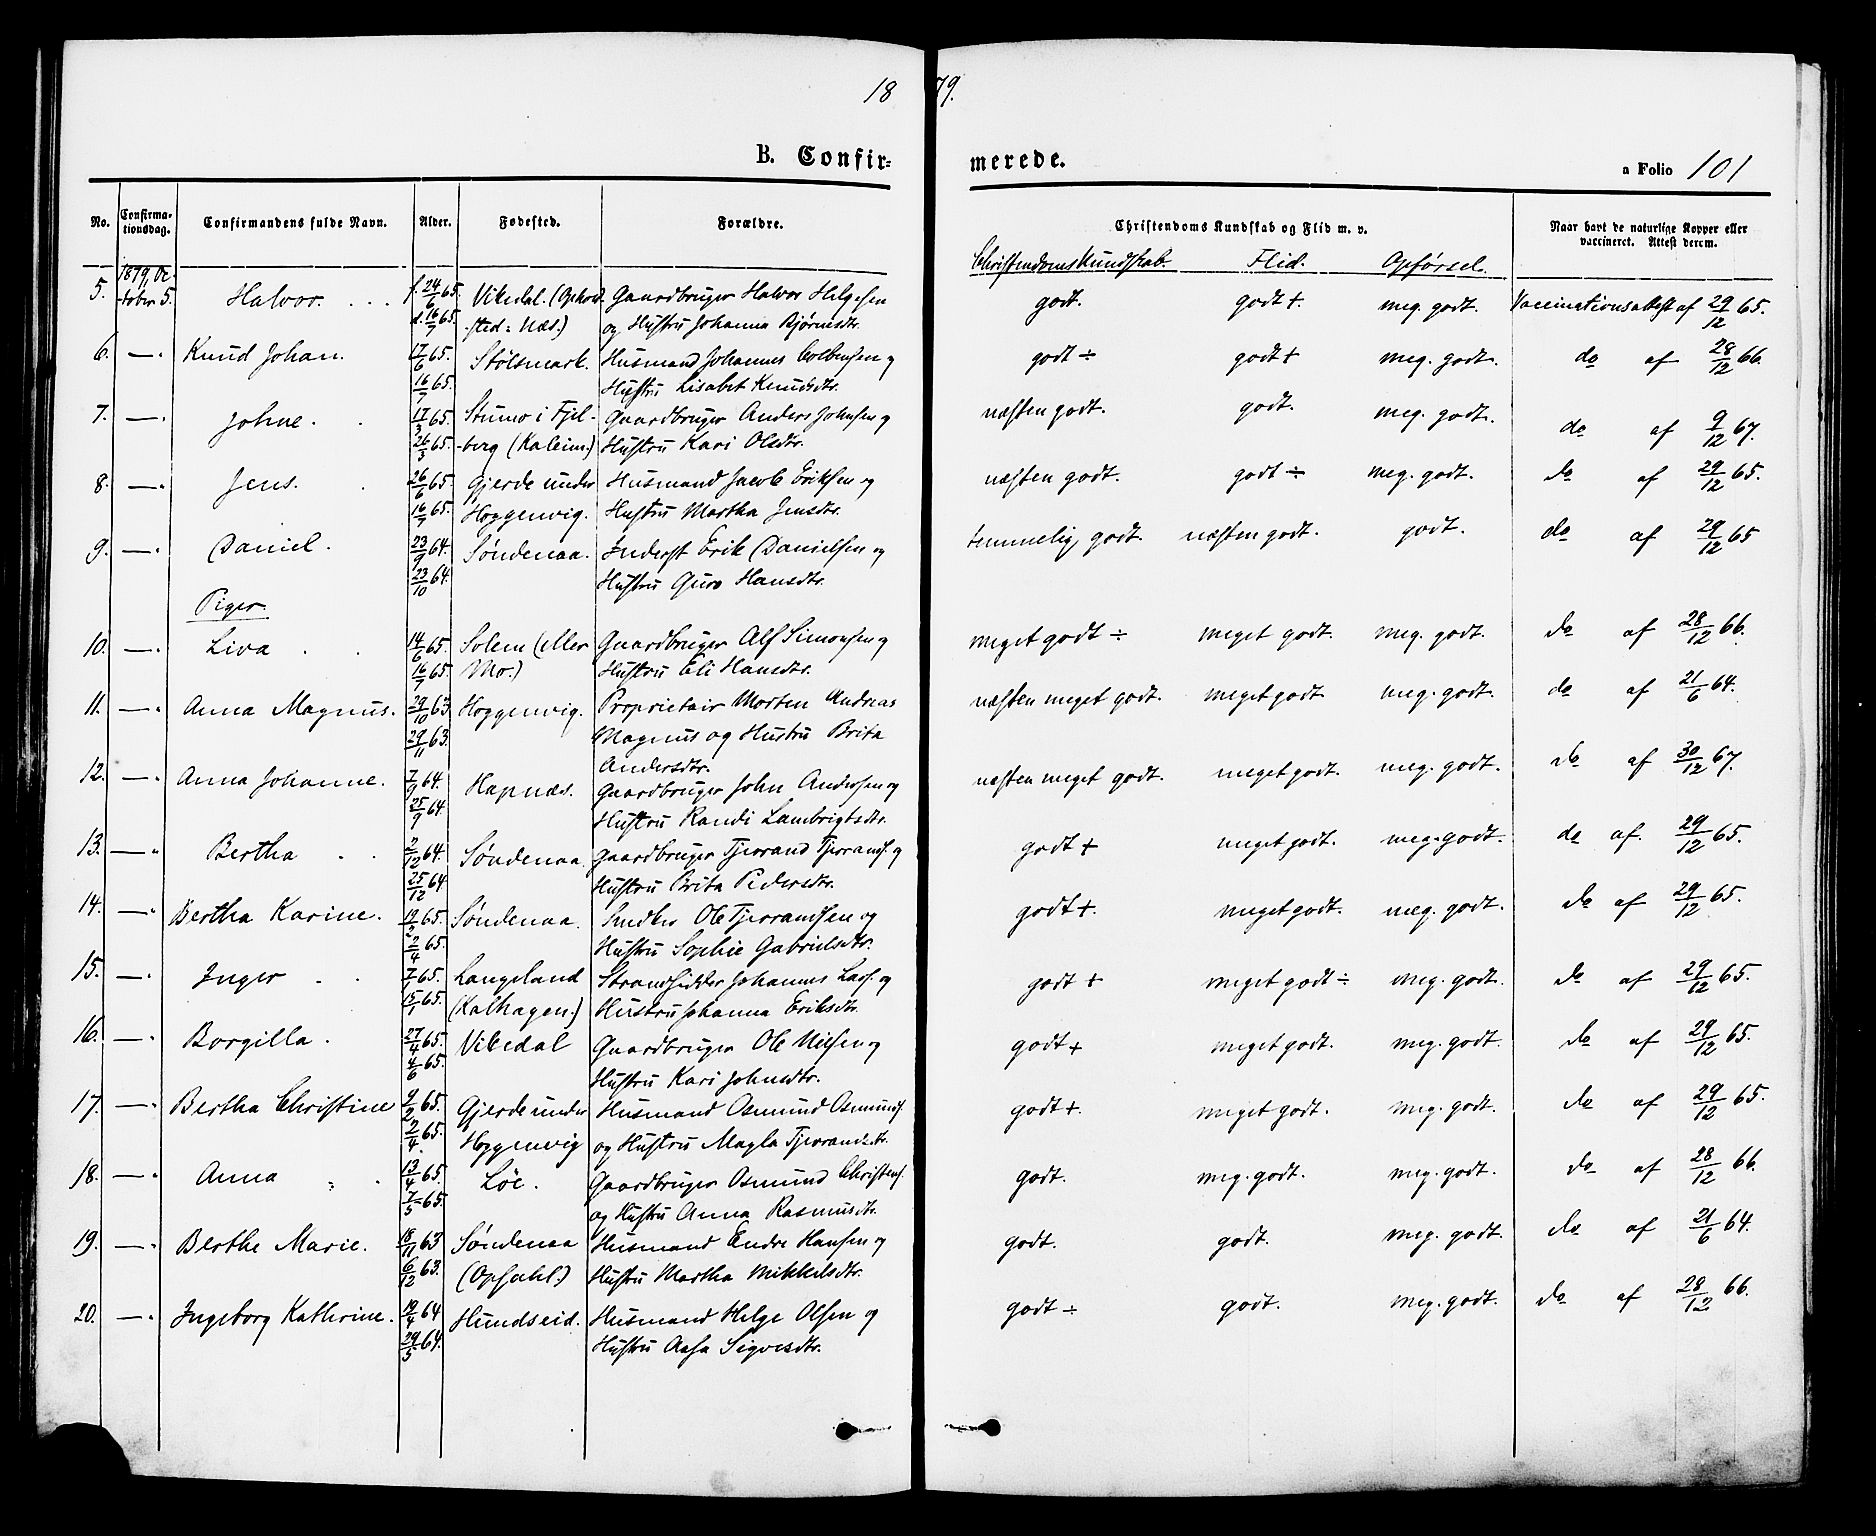 18 79.
B. Confirmerede.
a Folio 101
No. Confirmationsdag. Confirmandens fulde Navn. Alder. Fødested. Forældre. Christendoms Kundskab og Flid m. v. Naar havt de naturlige Kopper eller vaccineret. Attest derom.
Christendomskundskab. Flid. Opførsel.
5. 1879, October 5. Halvor. f. 24/6 65. Vikedal. (Opho Gaardbruger Halvor Helgesen godt. godt +. meg. godt. Vaccinationsattest af 29/12 65.
d. 16/7 65. sted: Næs.) og Hustru Johanna Bjørnsdtr.
6. —. Knud Johan. 17/6 65. Stølsmark. Husmand Johannes og godt ÷ godt + meg. godt. do af 28/12 66.
16/7 65. Hustru Lisabet Knudsdtr.
7. —. Johne. 17/3 65. i Fjel- Gaardbruger Anders Johnsen og næsten godt. godt. meg. godt. do af 9/12 67.
26/3 65. berg Hustru Kari Olsdtr.
8. —. Jens. 26/6 65. Gjerde under Husmand Jacob Eriksen og næsten godt. godt ÷ meg. godt. do af 29/12 65.
16/7 65. Hoggenvig. Hustru Martha Jensdtr.
9. —. Daniel. 23/9 64. Søndenaa. Inderst Erik Danielsen og temmelig godt. næsten godt. godt. do af 29/12 65
23/10 64. Hustru Guro Hansdtr.
Piger.
10. —. Liva 14/6 65. Solem (eller Gaardbruger Alf Simonsen og meget godt ÷ meget godt. meg. godt. do af 28/12 66.
16/7 65. Mo.) Hustru Eli Hansdtr.
11. —. Anna Magnus. 29/10 63 Hoggenvig. Proprietair Morten Andreas næsten meget godt. meget godt meg. godt. do af 21/6 64.
29/11 63. Magnus og Hustru Brita
Andersdtr.
12. —. Anna Johanne. 7/9 64. Hapnæs. Gaardbruger John Andersen og næsten meget godt. meget godt. meg. godt. do af 30/12 67.
25/9 64. Hustru Randi Lambrigtsdtr.
13. —. Bertha 2/12 64. Søndenaa. Gaardbruger Tjerand Tjerands. og godt + meget godt. meg. godt. do af. 29/12 65.
25/12 64 Hustru Brita Pedersdtr.
14. —. Bertha Karine. 19/2 65. Søndenaa. Ole Tjerandsen og godt +. meget godt. meg. godt. do af 29/12 65.
2/4 65. Hustru Sophie Gabrielsdtr.
15. —. Inger 7/1 65. Langeland Strandsidder Johannes Lars. og godt + meget godt ÷ meg. godt. do af 29/12 65.
15/1 65. (Kalhagen.) Hustru Johanna Eriksdtr.
16. —. Borgilla. 27/4 65. Vikedal Gaardbruger Ole Nielsen og godt + meget godt. meg. godt. do af 29/12 65.
4/6 65. Hustru Kari Johnsdtr.
17. —. Bertha Christine 9/2 65. Gjerde under Husmand Osmund Osmunds. godt +. meget godt. meg. godt. do af 29/12 65.
2/4 65. Hoggenvig og Hustru Magla Tjerandsdtr.
18. —. Anna 13/4 65. Løe. Gaardbruger Osmund Christens. godt. meg. godt. meg. godt. do af 28/12 66.
7/5 65. og Hustru Anna Rasmusdtr.
19. —. Berthe Marie. 18/11 63 Søndenaa Husmand Endre Hansen og godt. godt. meg. godt. do af 21/6 64.
6/12 63. (Opsahl.) Hustru Martha Mikkelsdtr.
20. —. Ingeborg Kathrine. 19/4 64 Hundseid. Husmand Helge Olsen og godt ÷ godt. meg. godt. do af 28/12 66.
29/5 64. Hustru Aasa Sigvesdtr.